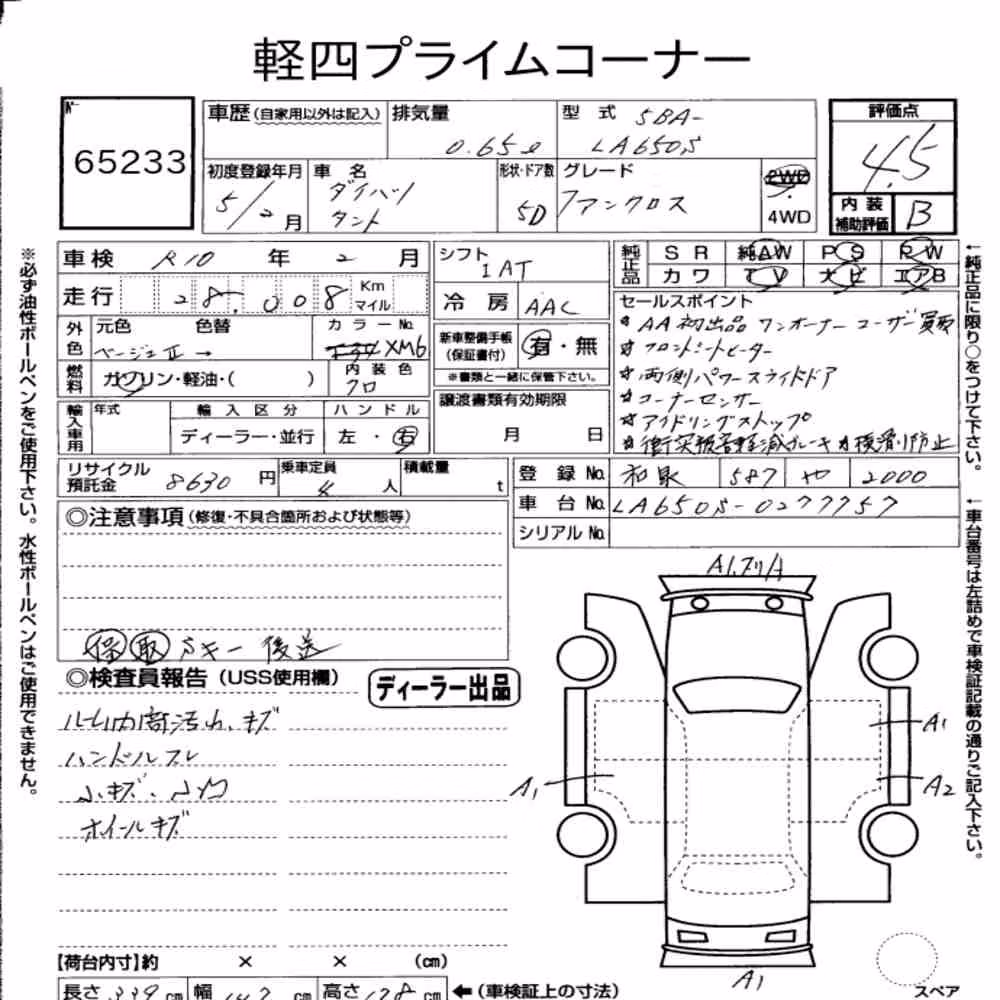 軽四プライムコーナー
№ 65233
車歴(自家用以外は記入) 排気量 0.65ℓ 型式 5BA-LA650S
評価点 4.5
初度登録年月 5/2月 車名 ダイハツ タント 形状・ドア数 5D グレード ファンクロス 2WD 4WD
内装補助評価 B
車検 R10年 2月
シフト IAT
純正品 SR 純AW PS PW
カワ TV ナビ エアB
走行 28,008 Km マイル
冷房 AAC
セールスポイント
*AA初出品 ワンオーナー ユーザー買取
*フロントシートヒーター
*両側パワースライドドア
*コーナーセンサー
*アイドリングストップ
*衝突被害軽減ブレーキ *横滑り防止
外色 元色 色替 カラーNo.
ベージュⅡ → XM6
新車整備手帳(保証書付) 有・無
※書類と一緒に保管下さい。
燃料 ガソリン・軽油・( ) 内装色 クロ
輸入車用 年式 輸入区分 ハンドル
ディーラー・並行 左・右
譲渡書類有効期限
月 日
リサイクル預託金 8630円 乗車定員 4人 積載量 t
登録No. 和泉 587 や 2000
車台No. LA650S-0277757
シリアルNo.
◎注意事項(修復・不具合箇所および状態等)
保 取 Sキー 後送
◎検査員報告(USS使用欄)
ディーラー出品
ルーム内窩汚れ、キズ
ハンドルスレ
小キズ、小凹
ホイールキズ
A1
A1
A2
A1
A1
【荷台内寸】約 × × (cm)
長さ 339cm 幅 147cm 高さ 178cm ←(車検証上の寸法)
スペア
※必ず油性ボールペンをご使用下さい。水性ボールペンはご使用できません。
←純正品に限り○をつけて下さい。
←車台番号は左詰めで車検証記載の通りご記入下さい。